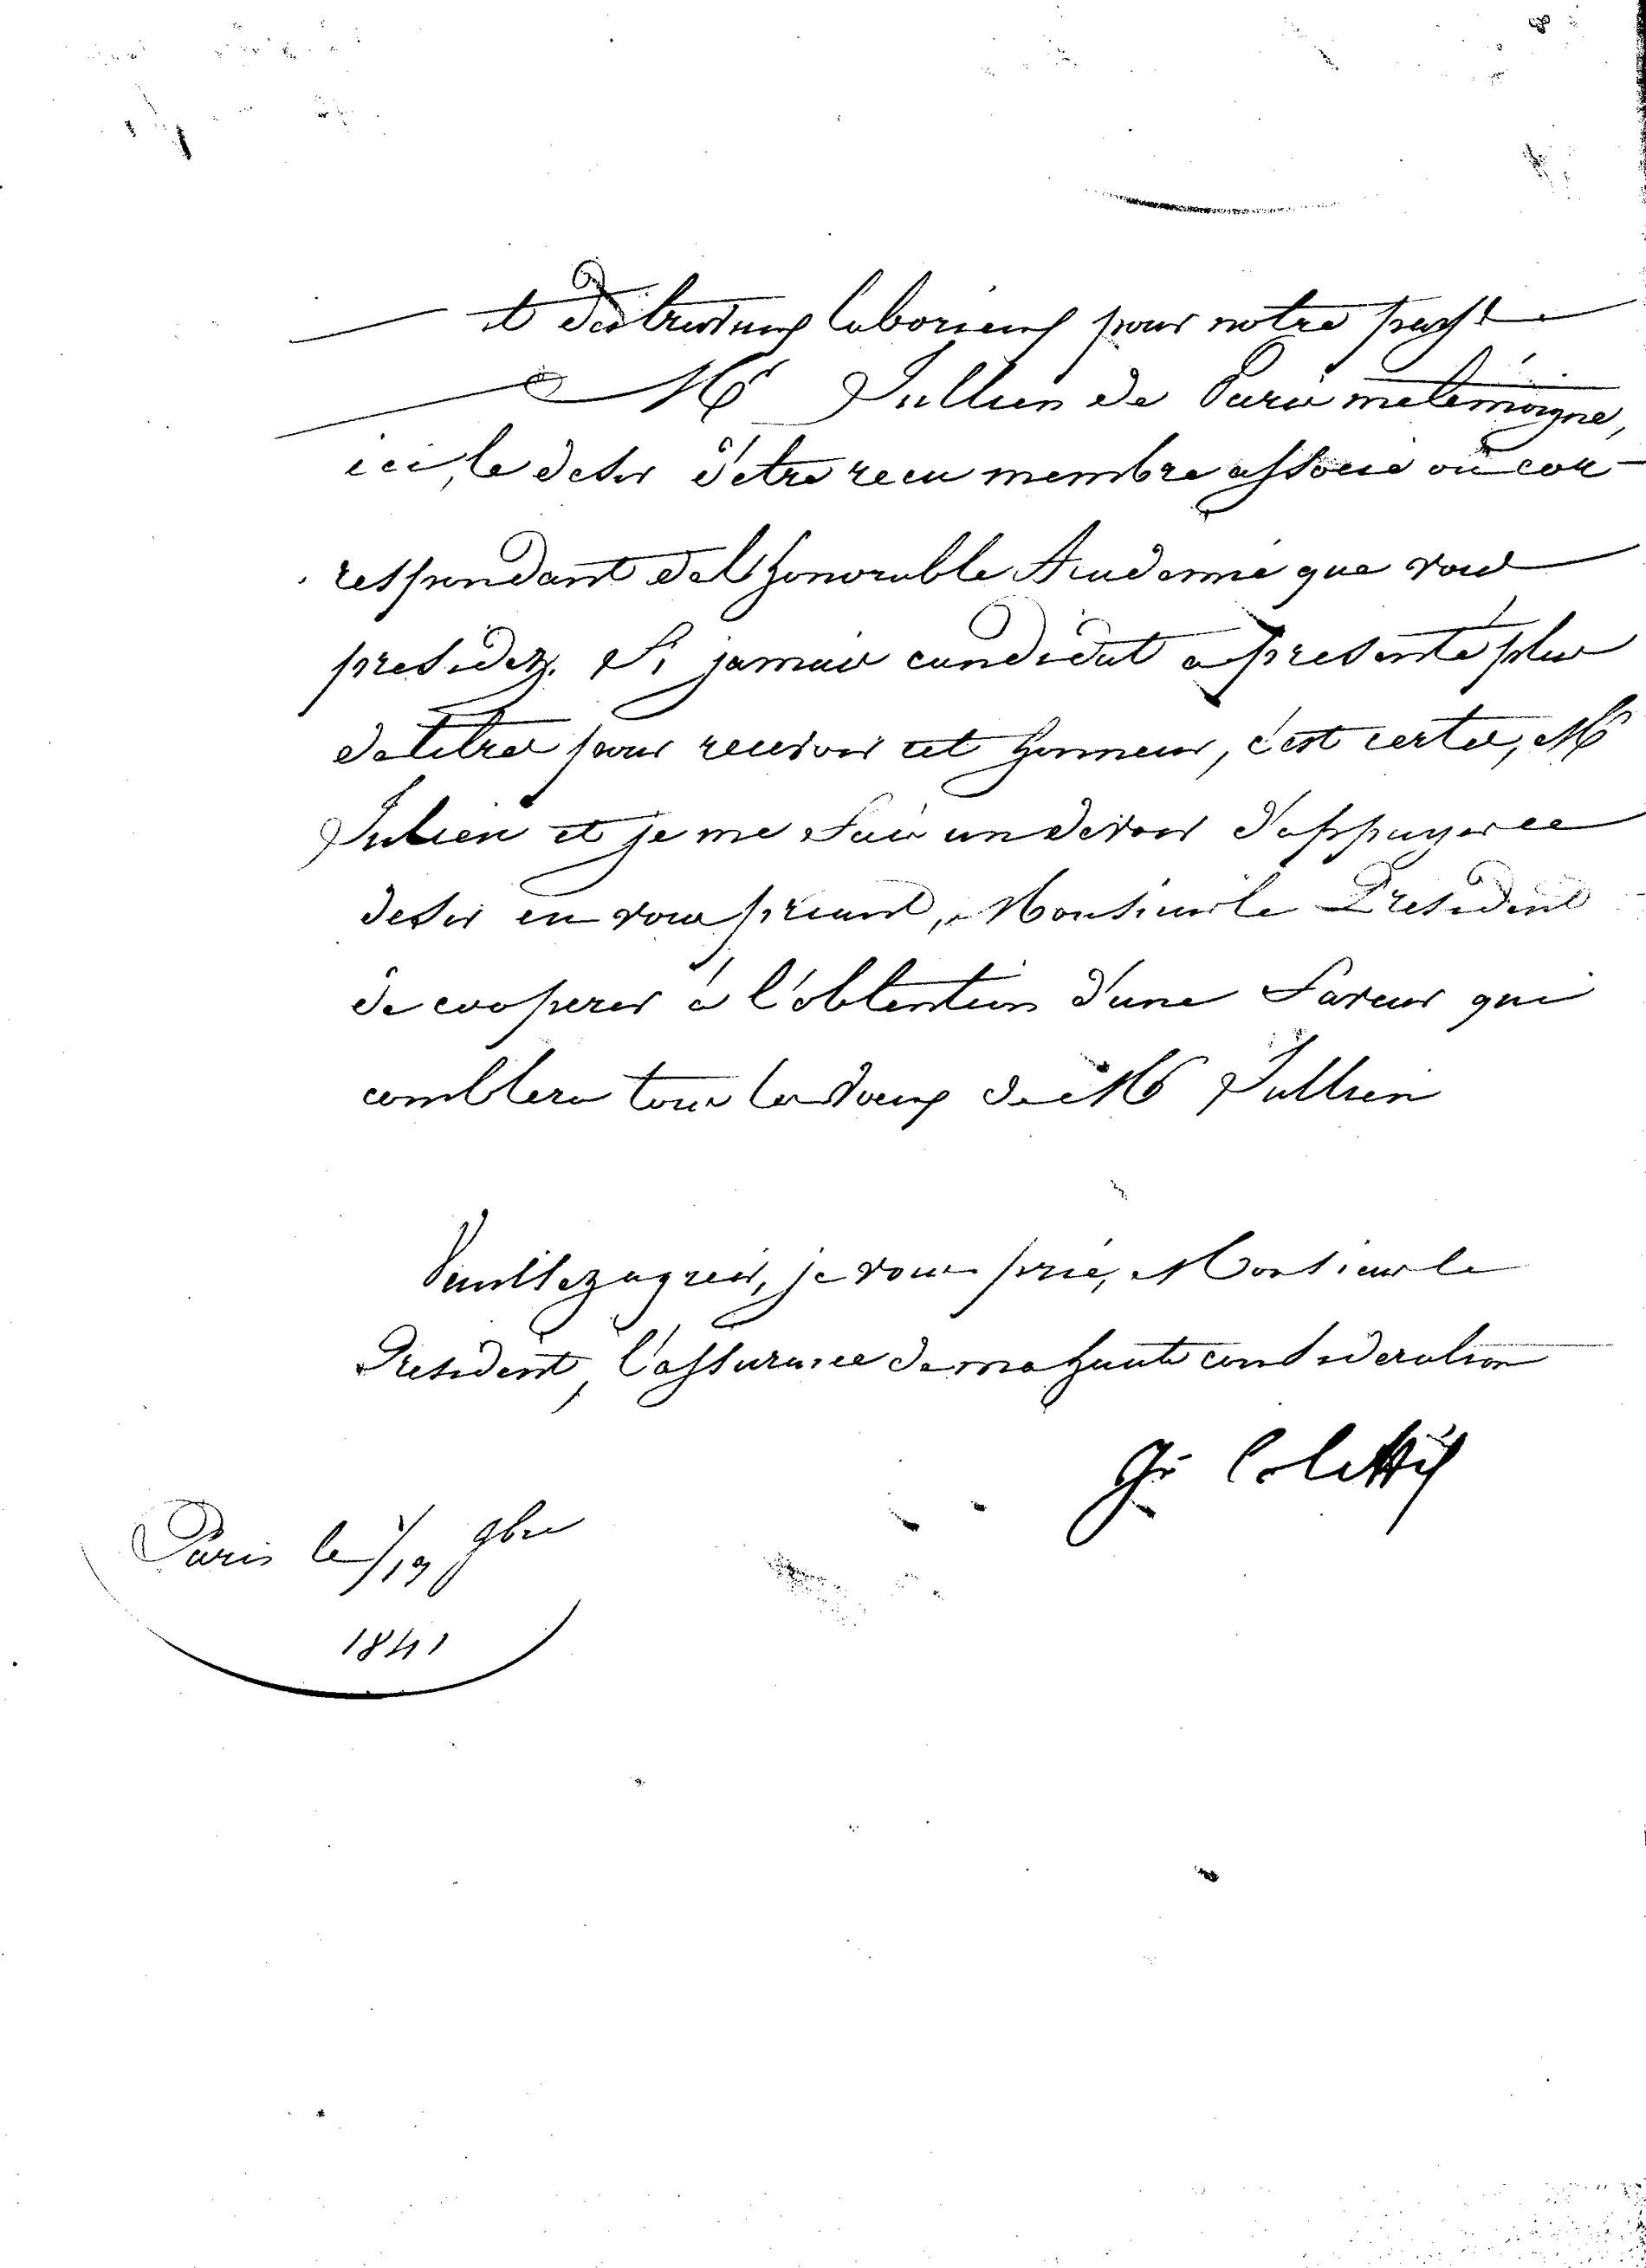 et des travaux laborieux pour notre pays.
Mr Jullien de Paris me temoigne,
ici, le desir d'etre recu membre associé ou cor-
respondant de l'honorable Academie que vous
presidez. Si jamais candidat a presenté plus
de titres pour recevoir cet honneur, c'est certes, Mr
Julien et je me fais un devoir d'appuyer ce
desir en vous priant, Monsieur le President
de cooperer à l'obtention d'une faveur qui
comblera tous les voeux de Mr Jullien
Veuillez agreer, je vous prie, Monsieur le
President, l'assurance de ma haute consideration
Coletti
Paris le 7/19 9bre
1841